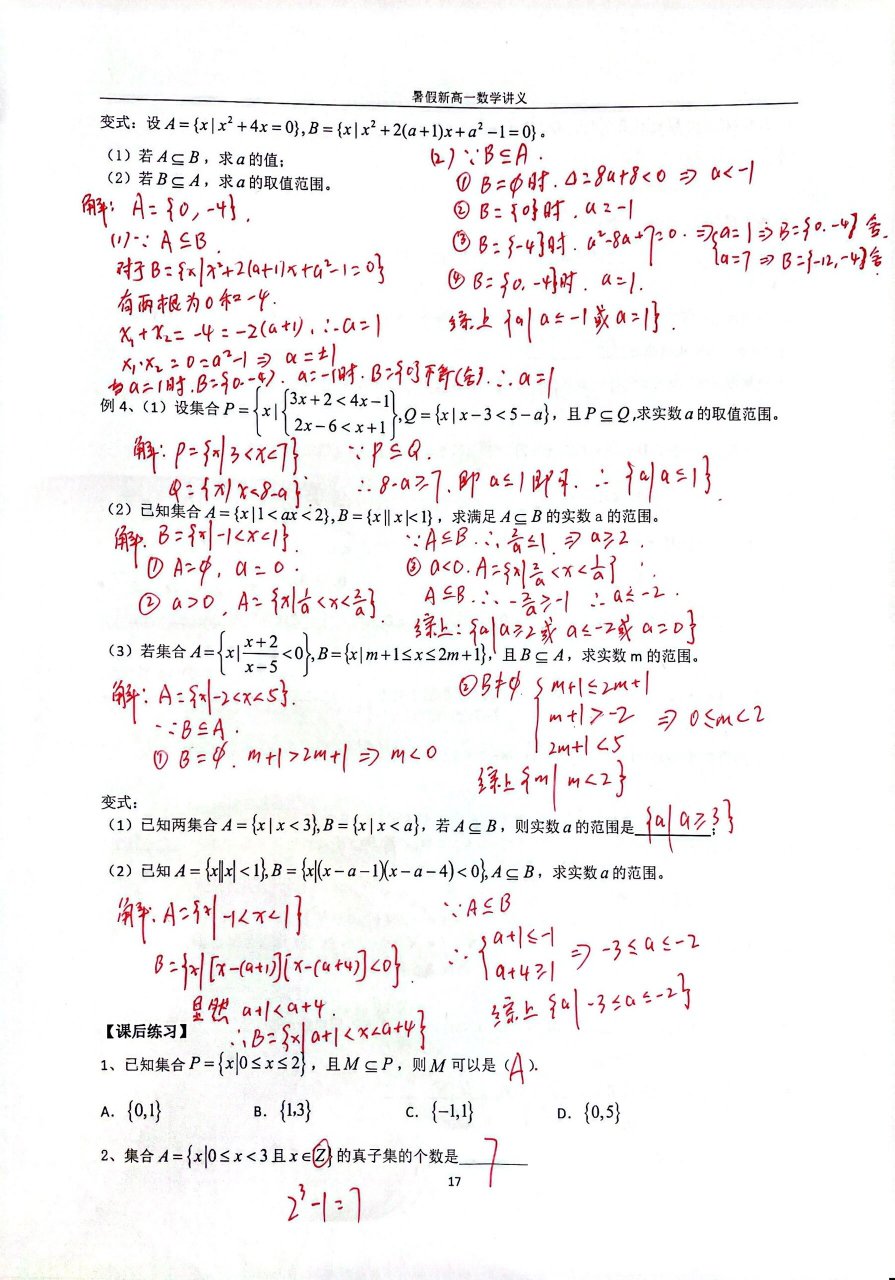 暑假新高一数学讲义
变式：设 A={x|x²+4x=0}, B={x|x²+2(a+1)x+a²-1=0}。
（1）若 A⊆B，求 a 的值；
（2）若 B⊆A，求 a 的取值范围。
解：A={0,-4}.
(1)∵ A⊆B.
对于B={x|x²+2(a+1)x+a²-1=0}
有两根为0和-4.
x₁+x₂=-4=-2(a+1).∴a=1
x₁·x₂=0=a²-1⇒a=±1
当a=1时.B={0.-4}. a=-1时.B={0}不符(舍).∴a=1
(2)∵B⊆A.
① B=∅时.Δ=8a+8<0 ⇒ a<-1
② B={0}时.a=-1
③ B={-4}时.a²-8a+7=0.⇒{a=1⇒B={0.-4}舍.
a=7⇒B={-12,-4}舍
④ B={0,-4}时.a=1.
综上{a|a≤-1或a=1}.
例 4、（1）设集合 P={x|{3x+2<4x-1
2x-6<x+1}, Q={x|x-3<5-a}，且 P⊆Q,求实数 a 的取值范围。
解：P={x|3<x<7}
Q={x|x<8-a}
∵P⊆Q.
∴8-a≥7.即a≤1即可.∴{a|a≤1}
（2）已知集合 A={x|1<ax<2}, B={x||x|<1}，求满足 A⊆B 的实数 a 的范围。
解.B={x|-1<x<1}.
① A=∅, a=0.
② a>0, A={x|1/a<x<2/a}
∵A⊆B.∴2/a≤1 ⇒a≥2.
③ a<0.A={x|2/a<x<1/a}
A⊆B.∴-2/a≥-1 ∴a≤-2.
综上：{a|a≥2或a≤-2或a=0}
（3）若集合 A={x|(x+2)/(x-5)<0}, B={x|m+1≤x≤2m+1}，且 B⊆A，求实数 m 的范围。
解：A={x|-2<x<5}.
∵B⊆A.
① B=∅.m+1>2m+1⇒m<0
② B≠∅.{m+1≤2m+1
m+1>-2 ⇒0≤m<2
2m+1<5
综上{m|m<2}
变式：
（1）已知两集合 A={x|x<3}, B={x|x<a}，若 A⊆B，则实数 a 的范围是{a|a≥3}；
（2）已知 A={x||x|<1}, B={x|(x-a-1)(x-a-4)<0}, A⊆B，求实数 a 的范围。
解.A={x|-1<x<1}
B={x|[x-(a+1)][x-(a+4)]<0}
显然 a+1<a+4.
∴B={x|a+1<x<a+4}
∵A⊆B
∴{a+1≤-1
a+4≥1 ⇒-3≤a≤-2
综上{a|-3≤a≤-2}
【课后练习】
1、已知集合 P={x|0≤x≤2}，且 M⊆P，则 M 可以是（A）.
A. {0,1} B. {1,3} C. {-1,1} D. {0,5}
2、集合 A={x|0≤x<3且x∈Z}的真子集的个数是 7
2³-1=7
17